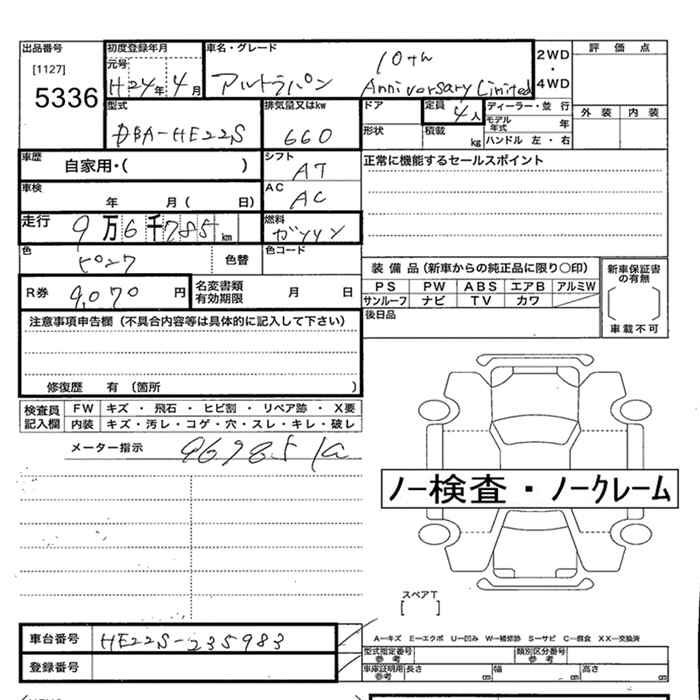 出品番号
[1127]
5336
初度登録年月
元号
H24年4月
車名・グレード
アルトラパン
10th
Anniversary Limited
2WD
・
4WD
評価点
外装 内装
型式
DBA-HE22S
排気量又はkw
660
ドア
定員
4人
形状
積載
kg
ディーラー・並行
モデル年式
年
ハンドル 左・右
車歴
自家用・( )
シフト
AT
正常に機能するセールスポイント
車検
年 月( 日)
AC
AC
走行
9万6千785km
燃料
ガソリン
色
ピンク
色替
色コード
R券
9,070円
名変書類
有効期限
月 日
装備品(新車からの純正品に限り〇印)
PS PW ABS エアB アルミW
サンルーフ ナビ TV カワ
後日品
新車保証書
の有無
車載不可
注意事項申告欄(不具合内容等は具体的に記入して下さい)
修復歴 有(箇所 )
検査員
記入欄
FW キズ・飛石・ヒビ割・リペア跡・X要
内装 キズ・汚レ・コゲ・穴・スレ・キレ・破レ
メーター指示
96785 K
ノー検査・ノークレーム
スペアT
[ ]
車台番号
HE22S-235983
登録番号
A…キズ E…エクボ U…凹み W…補修跡 S…サビ C…腐食 XX…交換済
型式指定番号
参考
類別区分番号
参考
車庫証明用
参考
長さ
cm
幅
cm
高さ
cm